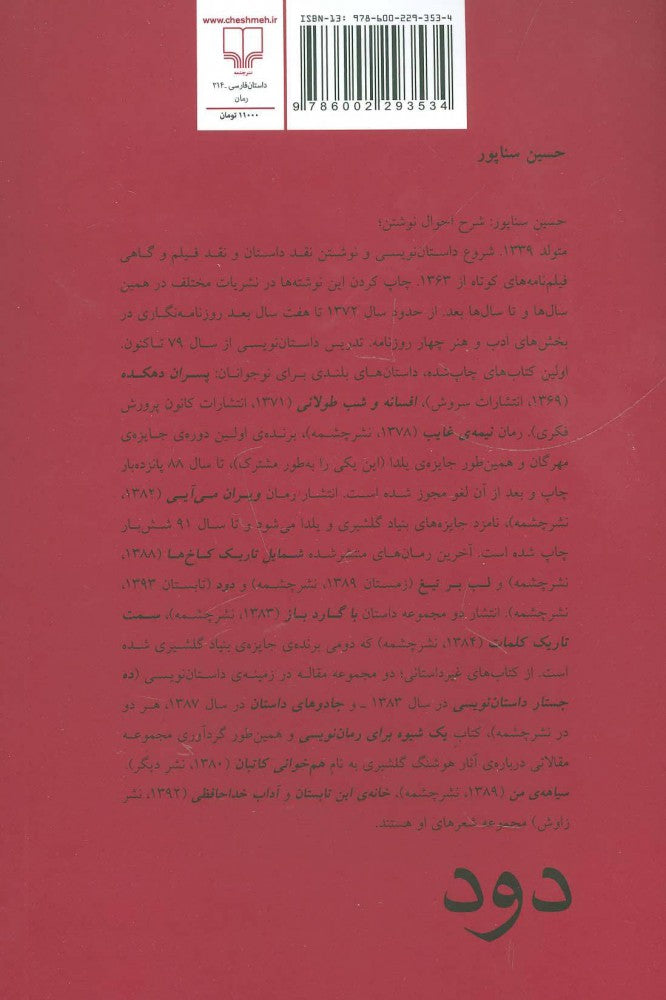 www.cheshmeh.ir
نشرچشمه
داستان فارسی - ۲۱۴
رمان
۱۱۰۰۰ تومان
ISBN-13: 978-600-229-353-4
9 786002 293534
حسین سناپور
حسین سناپور: شرح احوال نوشتن؛
متولد ۱۳۳۹. شروع داستان‌نویسی و نوشتن نقد داستان و نقد فیلم و گاهی
فیلم‌نامه‌های کوتاه از ۱۳۶۳. چاپ کردن این نوشته‌ها در نشریات مختلف در همین
سال‌ها و تا سال‌ها بعد. از حدود سال ۱۳۷۲ تا هفت سال بعد روزنامه‌نگاری در
بخش‌های ادب و هنر چهار روزنامه. تدریس داستان‌نویسی از سال ۷۹ تاکنون.
اولین کتاب‌های چاپ‌شده، داستان‌های بلندی برای نوجوانان: پسران دهکده
(۱۳۶۹، انتشارات سروش)، افسانه و شب طولانی (۱۳۷۱، انتشارات کانون پرورش
فکری). رمان نیمه‌ی غایب (۱۳۷۸، نشرچشمه)، برنده‌ی اولین دوره‌ی جایزه‌ی
مهرگان و همین‌طور جایزه‌ی یلدا (این یکی را به‌طور مشترک)، تا سال ۸۸ پانزده‌بار
چاپ و بعد از آن لغو مجوز شده است. انتشار رمان ویران می‌آیی (۱۳۸۲،
نشرچشمه)، نامزد جایزه‌های بنیاد گلشیری و یلدا می‌شود و تا سال ۹۱ شش‌بار
چاپ شده است. آخرین رمان‌های منتشرشده شمایل تاریک کاخ‌ها (۱۳۸۸،
نشرچشمه) و لب بر تیغ (زمستان ۱۳۸۹، نشرچشمه) و دود (تابستان ۱۳۹۳،
نشرچشمه). انتشار دو مجموعه داستان با گارد باز (۱۳۸۳، نشرچشمه)، سمت
تاریک کلمات (۱۳۸۴، نشرچشمه) که دومی برنده‌ی جایزه‌ی بنیاد گلشیری شده
است. از کتاب‌های غیرداستانی؛ دو مجموعه مقاله در زمینه‌ی داستان‌نویسی (ده
جستار داستان‌نویسی در سال ۱۳۸۳ - و جادوهای داستان در سال ۱۳۸۷، هر دو
در نشرچشمه)، کتاب یک شیوه برای رمان‌نویسی و همین‌طور گردآوری مجموعه
مقالاتی درباره‌ی آثار هوشنگ گلشیری به نام هم‌خوانی کاتبان (۱۳۸۰، نشر دیگر).
سیاهه‌ی من (۱۳۸۹، نشرچشمه)، خانه‌ی این تابستان و آداب خداحافظی (۱۳۹۲، نشر
زاوش) مجموعه شعرهای او هستند.
دود